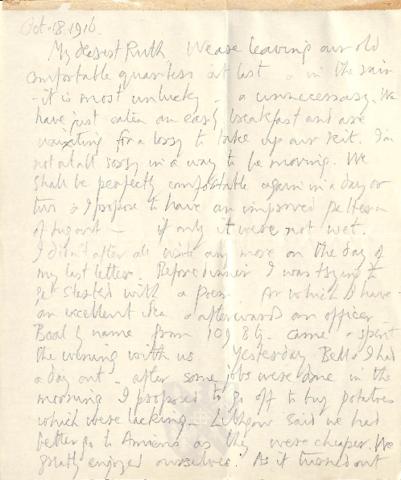 Oct. 18. 1916.
My dearest Ruth, We are leaving our old
comfortable quarters at last & in the rain
- it is most unlucky - & unnecessary. We
have just eaten an early breakfast and are
waiting for a lorry to take up our kit. I'm
not at all sorry in a way to be moving. We
shall be perfectly comfortable again in a day or
two & I propose to have an improved pattern
of dugout - if only it were not wet.
I didn't after all write any more on the day of
my last letter. Before dinner I was trying to
get started with a poem for which I have
an excellent idea & afterwards an officer
by name from 109 Bty. came & spent
the evening with us Yesterday Bell & I had
a day out - after some jobs were done in the
morning I proposed to go off to buy potatoes
which were lacking - Lithgow said we had
better go to Amiens as they were cheaper. We
greatly enjoyed ourselves. As it turned out